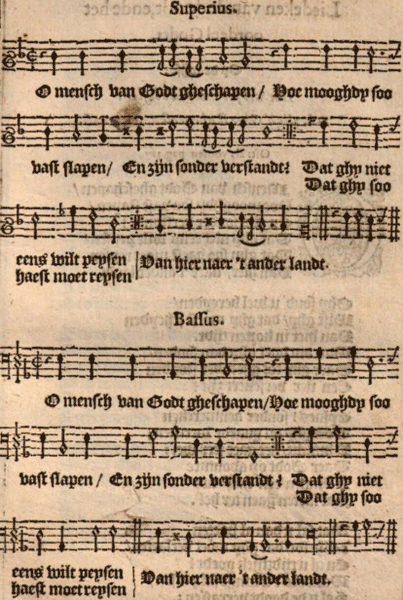 Superius.
O mensch van Godt gheschapen / Hoe mooghdy soo
vast slapen / En zijn sonder verstandt? Dat ghy niet
Dat ghy soo
eens wilt peysen
haest moet reysen
Van hier naer 't ander landt.
Bassus.
O mensch van Godt gheschapen / Hoe mooghdy soo
vast slapen / En zijn sonder verstandt? Dat ghy niet
Dat ghy soo
eens wilt peysen
haest moet reysen
Van hier naer 't ander landt.